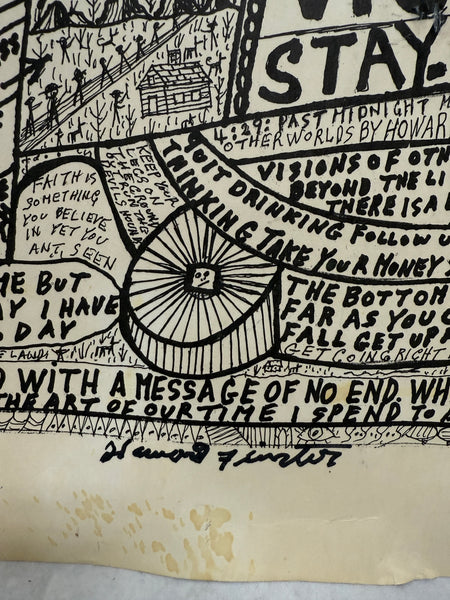 STAY.
4:29: PAST MIDNIGHT
OTHER WORLDS BY HOWAR
VISIONS OF OTH
BEYOND THE LI
THERE IS A
QUIT DRINKING FOLLOW
THINKING TAKE YOUR MONEY
KEEP YOUR
FAITH IS
SOMETHING
YOU BELIEVE
IN YET YOU
ANT, SEEN
ME BUT
AY I HAVE
DAY
THE BOTTOM
FAR AS YOU
FALL GET UP
GET GOING RIGHT
E LAND
WITH A MESSAGE OF NO END. WH
THE ART OF OUR TIME I SPEND TO
Howard Finster